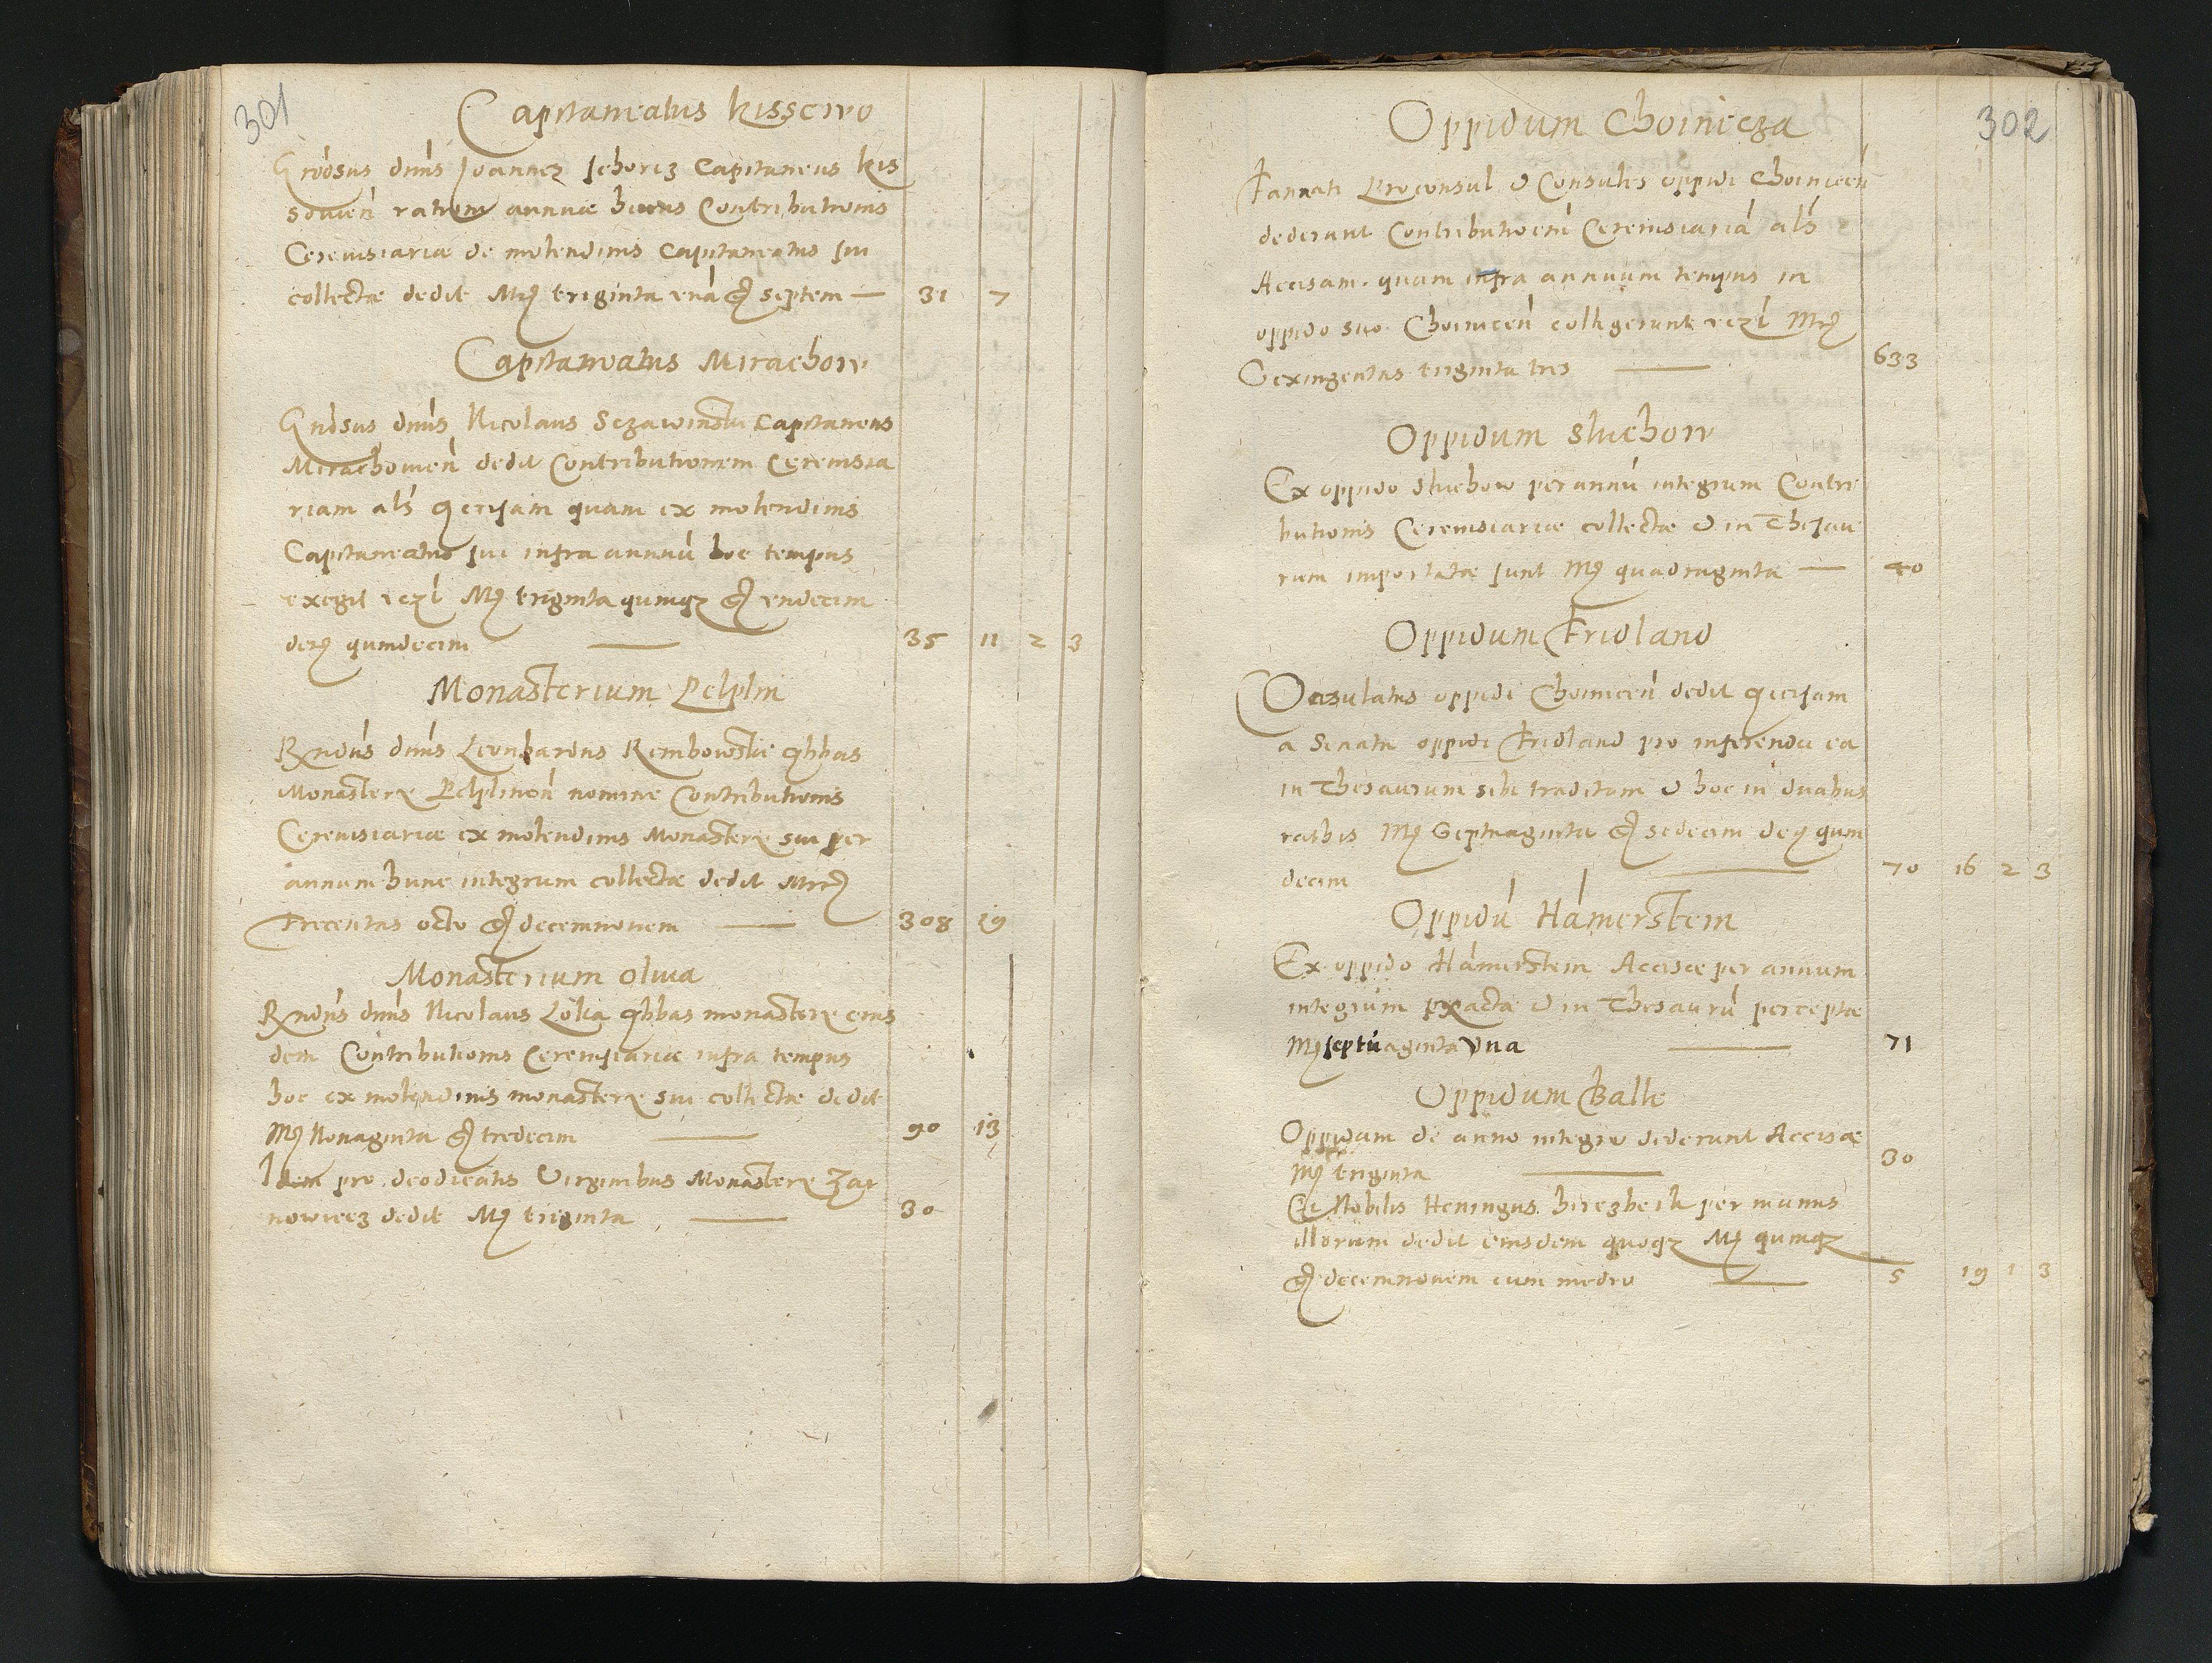 301
Capitaneatus Kisseivo
Gnōsus dnūs Joannes schoriz Capitaneus Kis
sovien̄ annuæ huius Contributionis
Cerevisiariæ de molendinis Capitaneatus sui
collectæ dedit Mrc triginta unā gr septem — 31 7
Capitaneatus Mirachow
Gnōsus dnūs Nicolaus Sczawinski Capitaneus
Mirachovien̄ dedit Contributionem Cerevisia
riam als̄ Accisam quam ex molendinis
Capitaneatus sui infra annuū hoc tempus
exegit Mrc triginta quinqz gr undecim
quindecim — 35 11 2 3
Monasterium Pelplin
Rndūs dnūs Leonhardus Rembowski Abbas
Monastery Pelplinen̄ nomine Contributionis
Cerevisiariæ ex molendinis Monastery sui per
annum hunc integrum collectæ dedit Mrc
Trecentas octo gr decemnovem — 308 19
Monasterium Oliva
Rndūs dnūs Nicolaus Loka Abbas monastery eius
dem Contributionis Cerevisiariæ infra tempus
hoc ex molendinis monastery sui collectæ dedit
Mrc Nonaginta gr tredecim — 90 13
Idem pro deodicatis Virginibus Monastery Zar
nowiecz dedit Mrc triginta — 30
302
Oppidum Choinicza
Famati Proconsul & Consules oppidi Choinicen̄
dederunt Contributioem̄ Cerevisiariā als̄
Accisam. quam infra annuum tempus in
oppido suo Choinicen̄ collegerunt Mrc
Sexingentas triginta tres — 633
Oppidum Sluchow
Ex oppido Sluchow per annū integrum Contri
butionis Cerevisiariæ collectæ & in Thesau
rum importatæ sunt Mrc quadraginta — 40
Oppidum Fridland
Consulatus oppidi Choinicen̄ dedit Accisam
a Senatu oppidi Fridland pro inferenda ea
in Thesaurum sibi traditam & hoc in duabus
rathis Mrc Septuaginta gr sedecim quin
decim — 70 16 2 3
Oppidū Hamerstein
Ex oppido Hamerstein Accisæ per annum
integrum exacta & in Thesaurū perceptæ
Mrc septuaginta una — 71
Oppidum Balle
Oppidum de anno integro dederunt Accisæ
Mrc triginta — 30
Et Nobilis Heningus per manus
illorum dedit eiusdem quoqz Mrc quinqz
gr decemnovem cum medio — 5 19 1 3